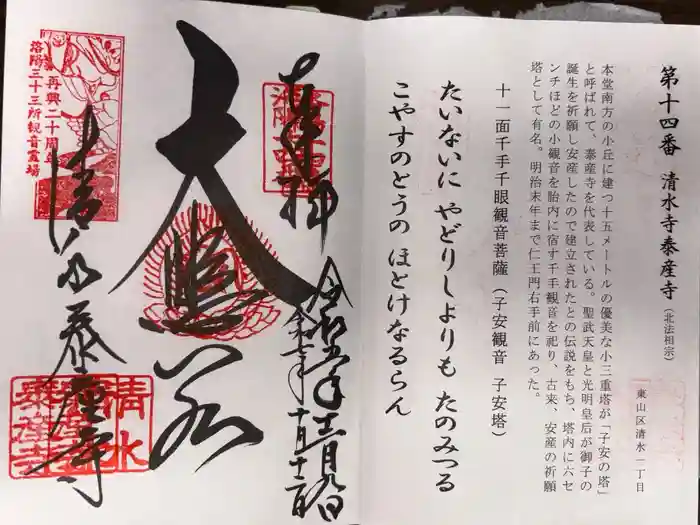 第十四番 清水寺泰産寺(北法相宗)
東山区清水一丁目
本堂南方の小丘に建つ十五メートルの優美な小三重塔が「子安の塔」
と呼ばれて、泰産寺を代表している。聖武天皇と光明皇后が御子の
誕生を祈願し安産したので建立されたとの伝説をもち、塔内に六セ
ンチほどの小観音を胎内に宿す千手観音を祀り、古来、安産の祈願
塔として有名。明治末年まで仁王門右手前にあった。
十一面千手千眼観音菩薩(子安観音 子安塔)
たいないに やどりしよりも たのみつる
こやすのとうの ほとけなるらん
奉拝
大悲
清水泰産寺
再興二十周年
洛陽三十三所観音霊場
清水
泰産寺